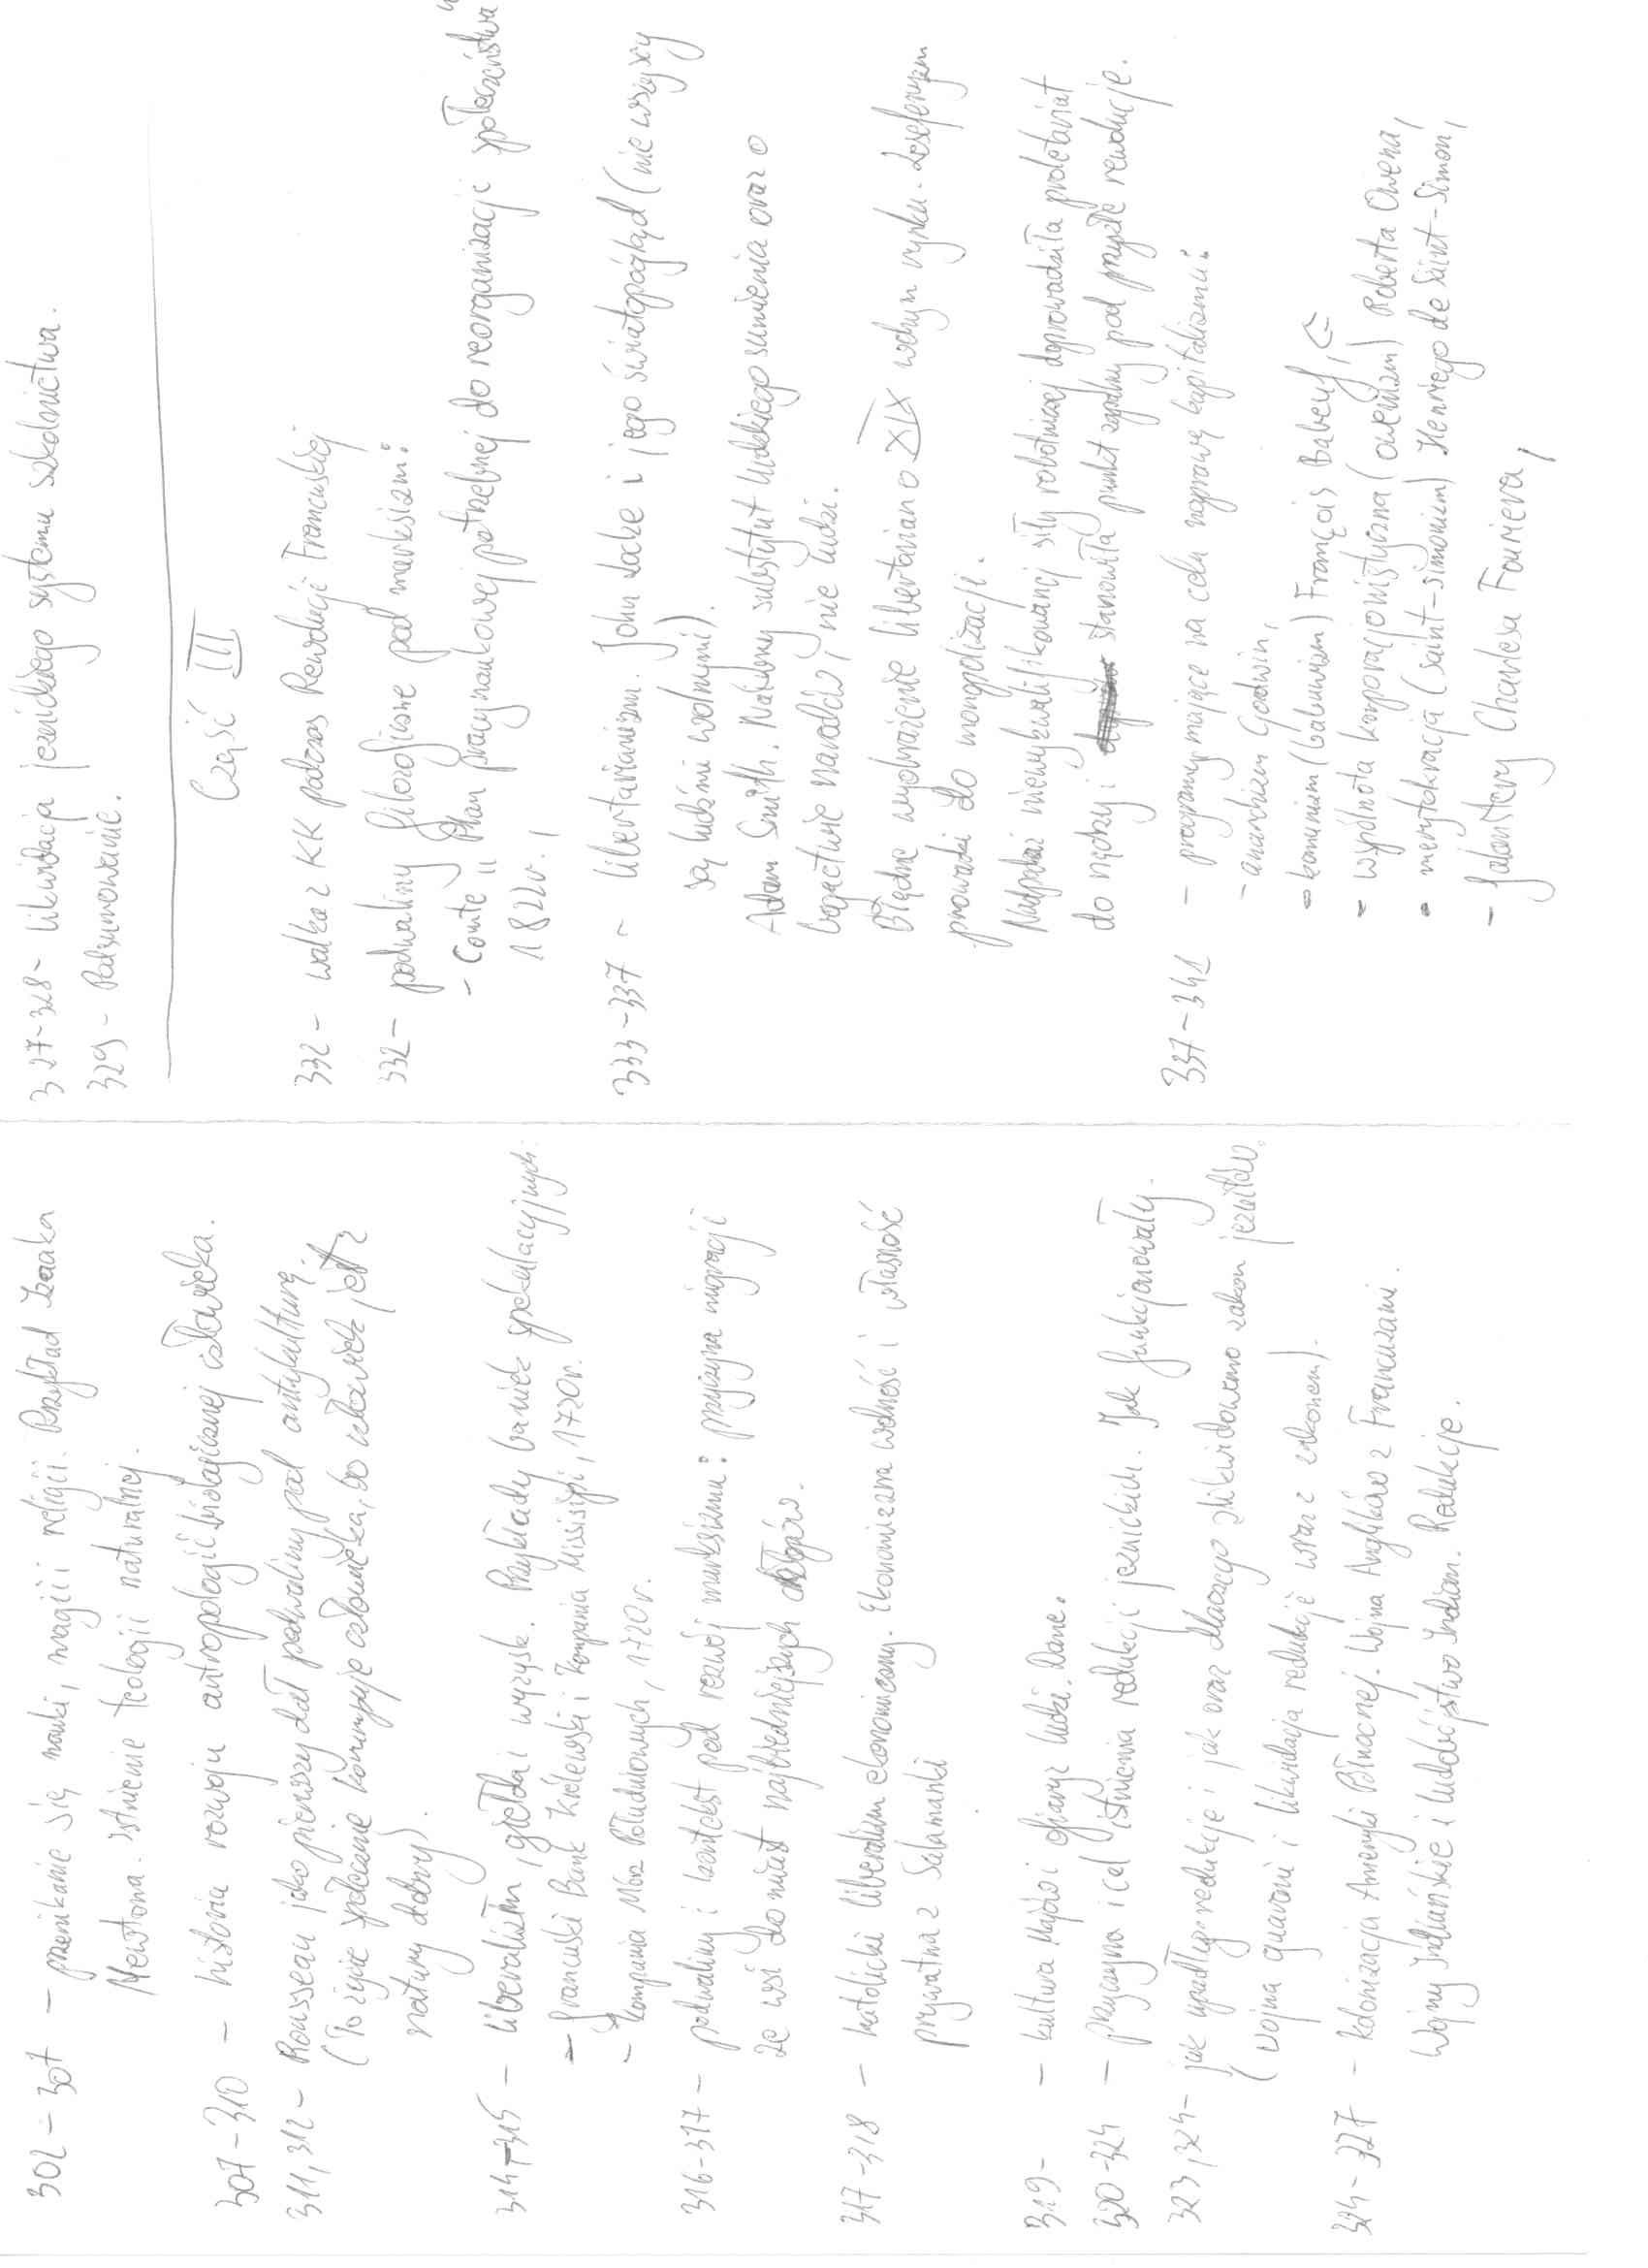 302 – 307 – przenikanie się nauki, magii i religii. Przykład Izaaka
Newtona. Istnienie teologii naturalnej.
307 – 310 – historia rozwoju antropologii biologicznej człowieka.
311, 312 – Rousseau jako pierwszy dał podwaliny pod antykulturę.
(To życie społeczne korumpuje człowieka, bo człowiek jest z
natury dobry).
314–315 – liberalizm, giełda i wyzysk. Przykłady baniek spekulacyjnych:
– francuski Bank Królewski i Kompania Missisipi, 1720r.
– Kompania Mórz Południowych, 1720r.
316–317 – podwaliny i kontekst pod rozwój marksizmu: przyczyna migracji
ze wsi do miast najbiedniejszych chłopów.
317–318 – katolicki liberalizm ekonomiczny. Ekonomiczna wolność i własność
prywatna z Salamanki
319 – kultura Majów i ofiary z ludzi. Dane.
320–324 – przyczyna i cel istnienia redukcji jezuickich. Jak funkcjonowały.
323, 324 – jak upadły redukcje i jak oraz dlaczego zlikwidowano zakon jezuitów.
(wojna guarani i likwidacja redukcji wraz z zakonem).
324–327 – kolonizacja Ameryki Północnej. Wojna Anglików z Francuzami.
Wojny Indiańskie i ludobójstwo Indian. Redukcje.
327–328 – likwidacja jezuickiego systemu szkolnictwa.
329 – Podsumowanie.
Część III
332 – walka z KK podczas Rewolucji Francuskiej
332 – podwaliny filozoficzne pod marksizm:
– Comte „Plan pracy naukowej potrzebnej do reorganizacji społeczeństwa"
1822r.,
333–337 – libertarianizm. John Locke i jego światopogląd (nie wszyscy
są ludźmi wolnymi).
Adam Smith. Naturalny substytut ludzkiego sumienia oraz o
bogactwie narodów, nie ludzi.
Błędne wyobrażenie libertarian o XIX wolnym rynku. Leseferyzm
prowadzi do monopolizacji.
Nadpodaż niewykwalifikowanej siły robotniczej doprowadziła proletariat
do nędzy i stanowiła punkt zapalny pod przyszłe rewolucje.
337–341 – programy mające na celu naprawę kapitalizmu:
– anarchizm Godwin,
– komunizm (babuwizm) François Babeuf, <=
– wspólnota korporacjonistyczna (owenizm) Roberta Owena,
• merytokracja (saint-simonizm) Henriego de Saint-Simon,
– falanstery Charlesa Fouriera,